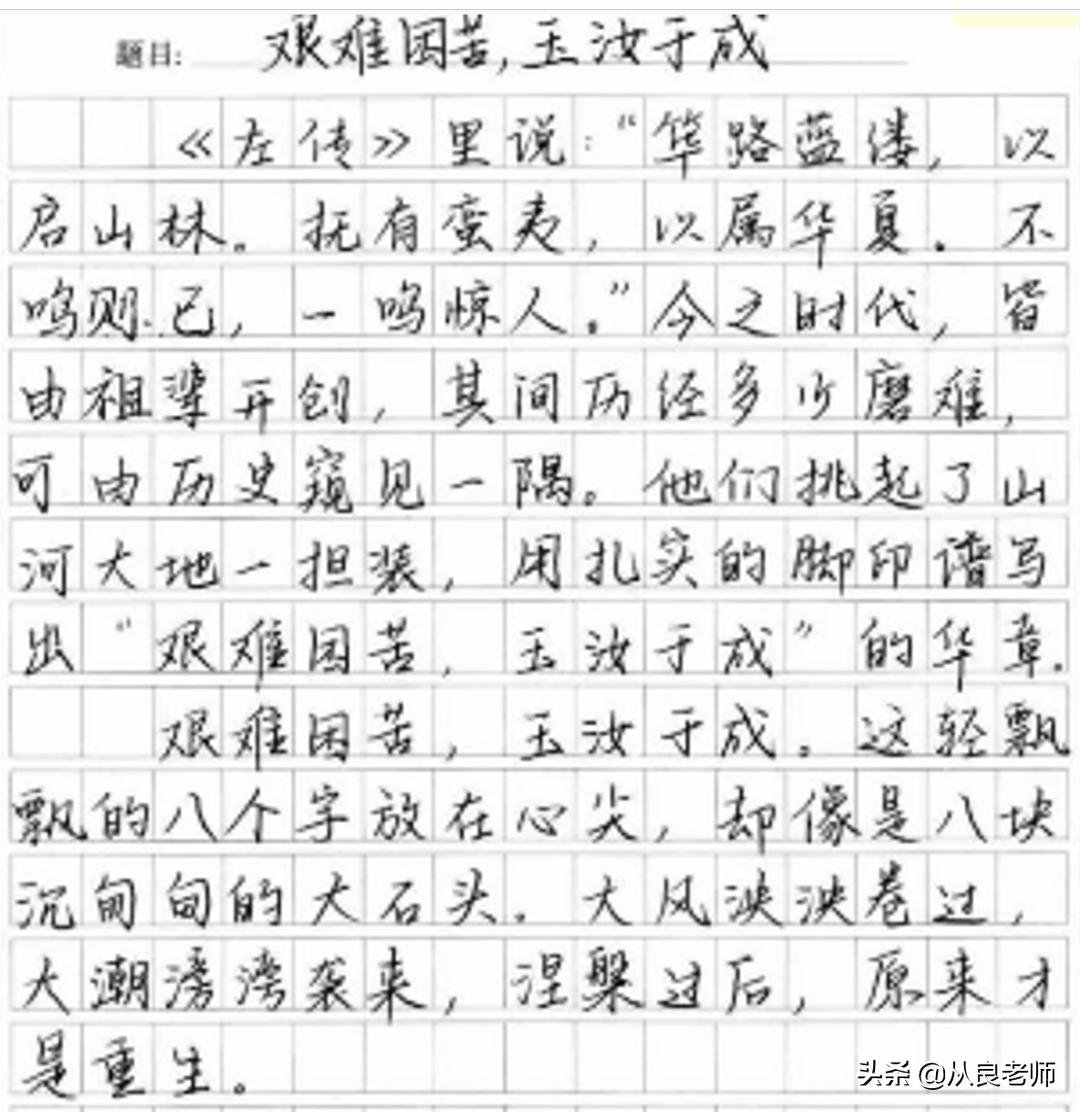 题目: 艰难困苦,玉汝于成
《左传》里说:“筚路蓝偻,以
启山林。抚有蛮夷,以属华夏.不
鸣则已,一鸣惊人。”今之时代,皆
由祖辈开创,其间历经多少磨难,
可由历史窥见一隅。他们挑起了山
河大地一担装,用扎实的脚印谱写
出“艰难困苦,玉汝于成”的华章.
艰难困苦,玉汝于成。这轻飘
飘的八个字放在心尖,却像是八块
沉甸甸的大石头.大风泱泱卷过,
大潮滂滂袭来,涅槃过后,原来才
是重生。
头条 @从良老师